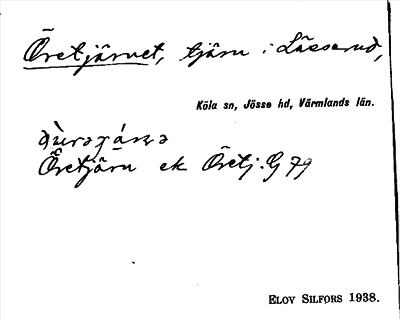 Öretjärnet, tjärn i Lässerud,
Köla sn, Jösse hd, Värmlands län.
Öretjärn ek Öretj. G 79
ELOV SILFORS 1938.